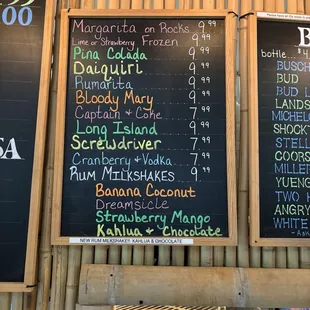 00
SA
Margarita on Rocks 9.99
Lime or Strawberry Frozen 9.99
Pina Colada 9.99
Daiquiri 9.99
Rumarita 9.99
Bloody Mary 9.99
Captain & Coke 7.99
Long Island 9.99
Screwdriver 7.99
Cranberry & Vodka 7.99
Rum Milkshakes 9.99
Banana Coconut
Dreamsicle
Strawberry Mango
Kahlua & Chocolate
NEW RUM MILKSHAKE: KAHLUA & CHOCOLATE
B
bottle
BUSCH
BUD
BUD L
LANDS
MICHELO
SHOCKT
STELL
COORS
MILLER
YUENG
TWO H
ANGRY
WHITE